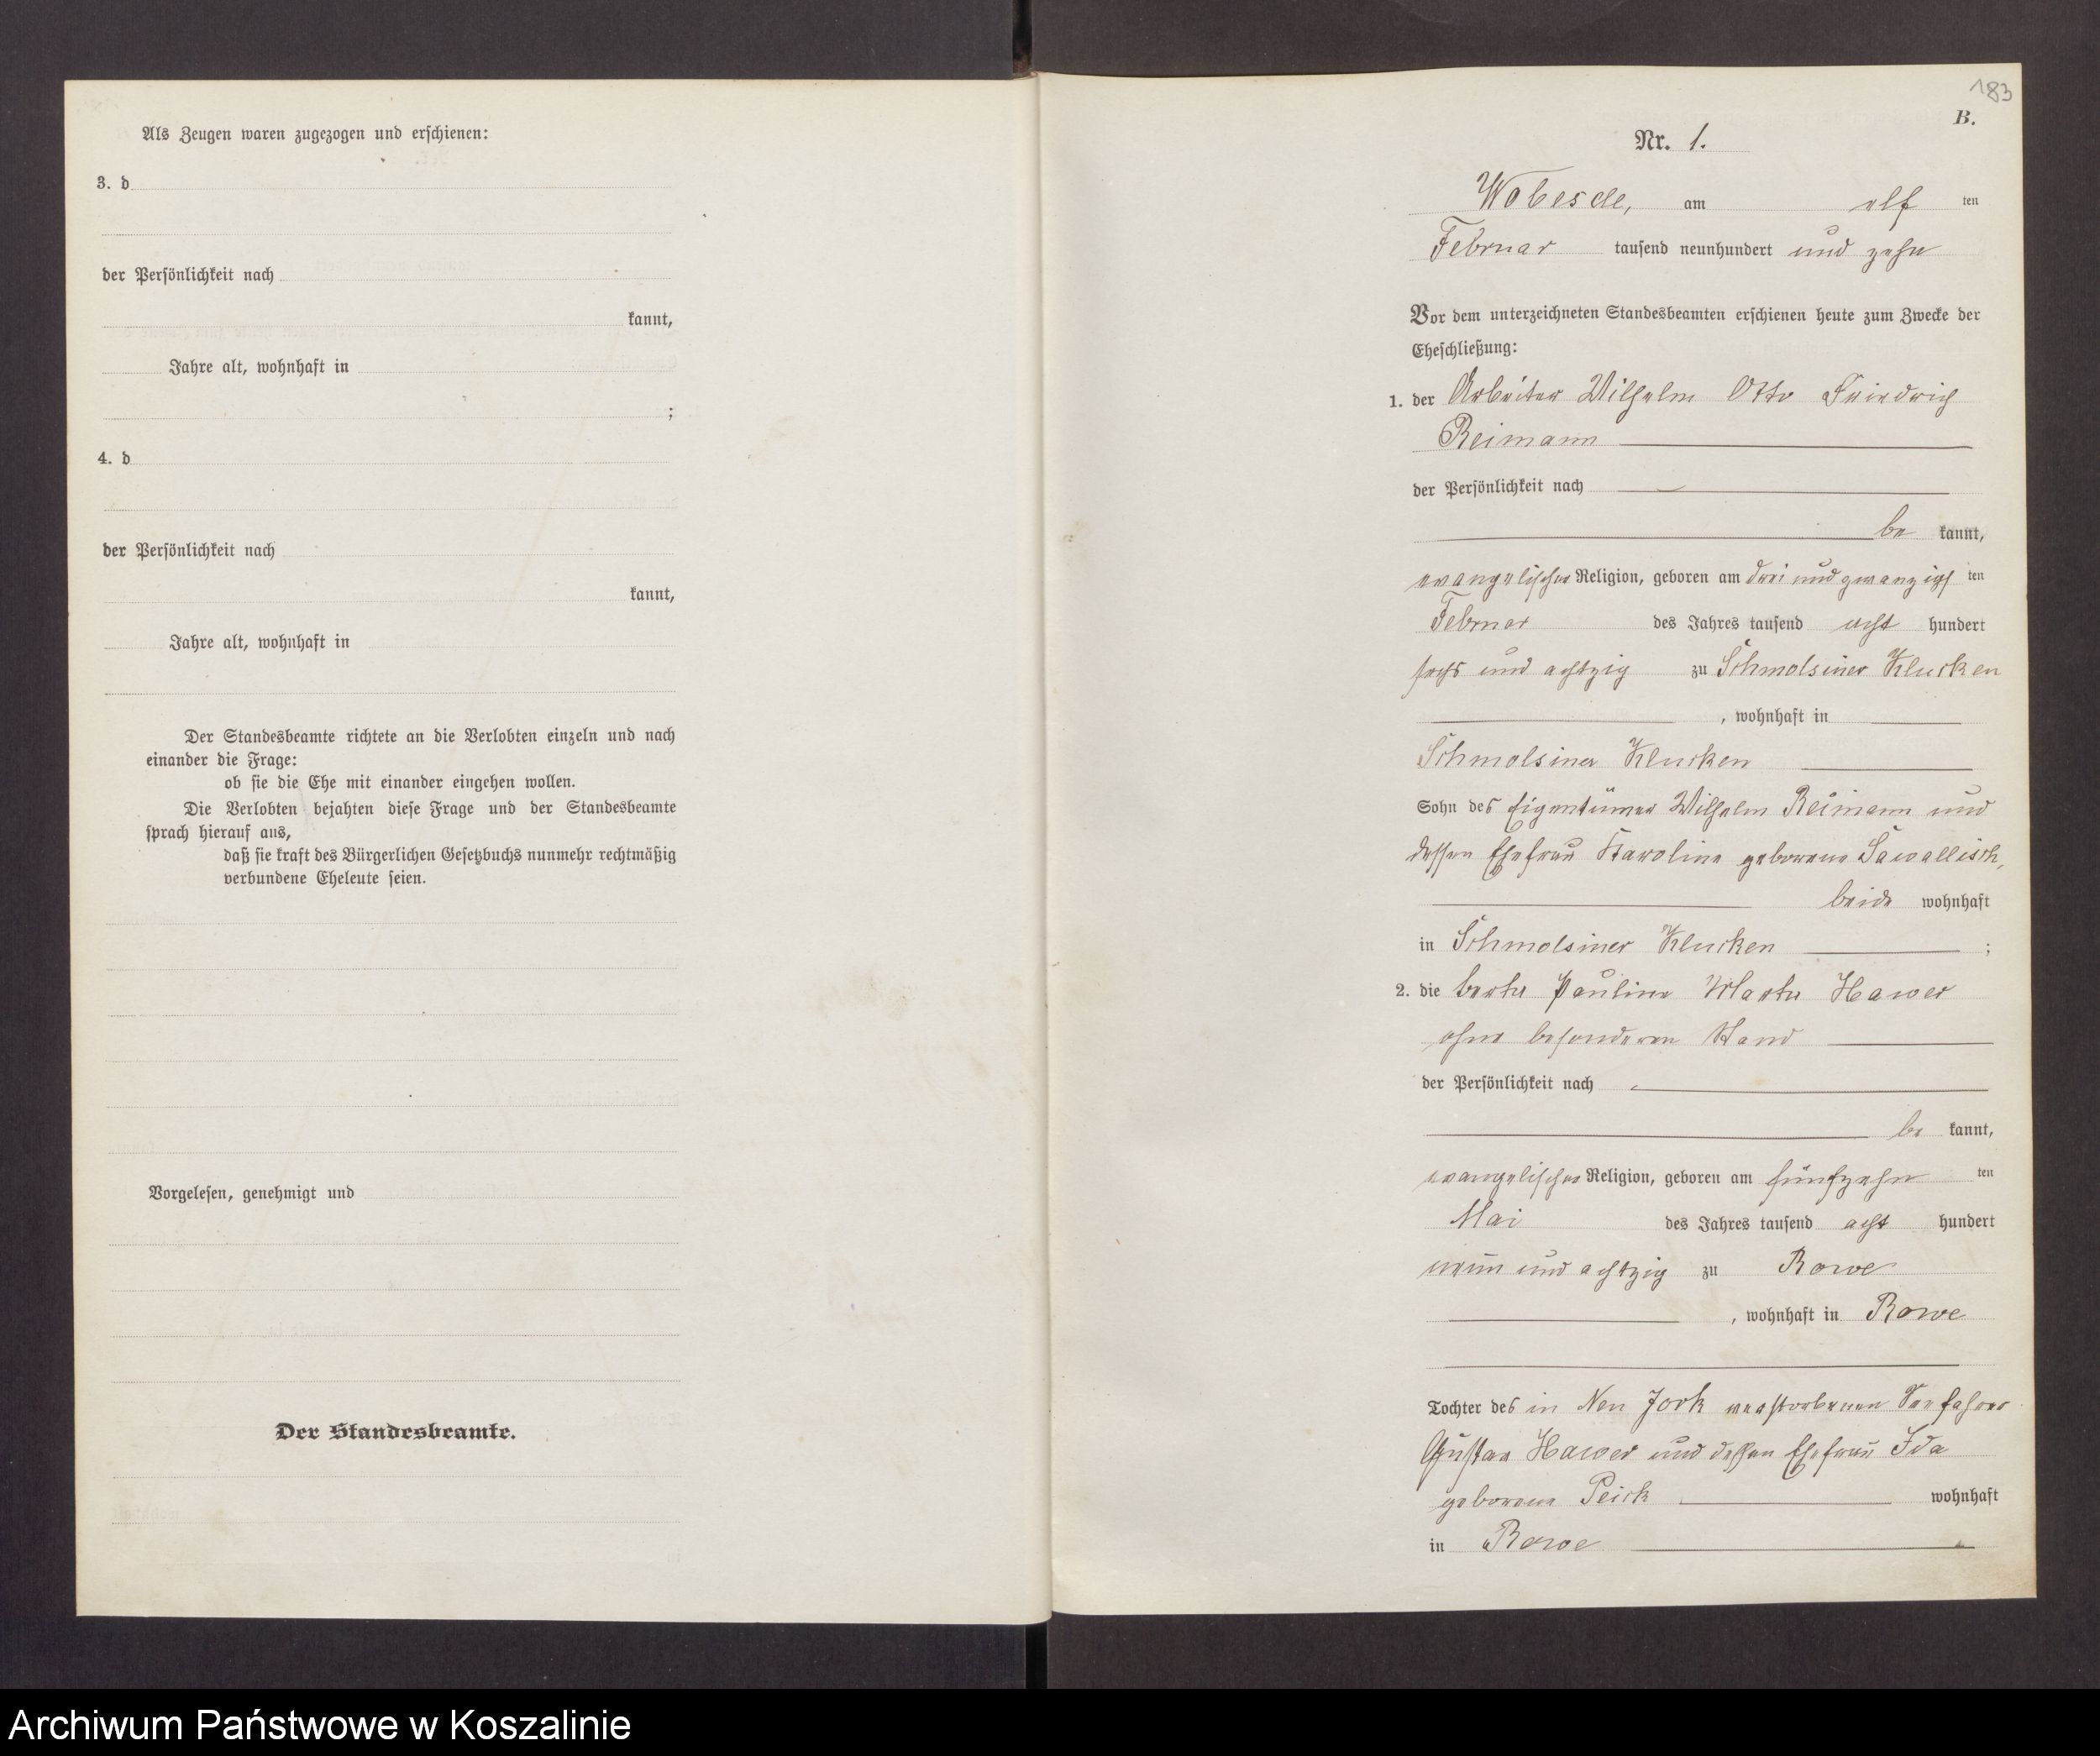 Als Zeugen waren zugezogen und erschienen:
3. d
der Persönlichkeit nach
kannt,
Jahre alt, wohnhaft in
;
4. d
der Persönlichkeit nach
kannt,
Jahre alt, wohnhaft in
Der Standesbeamte richtete an die Verlobten einzeln und nach
einander die Frage:
ob sie die Ehe mit einander eingehen wollen.
Die Verlobten bejahten diese Frage und der Standesbeamte
sprach hierauf aus,
daß sie kraft des Bürgerlichen Gesetzbuchs nunmehr rechtmäßig
verbundene Eheleute seien.
Vorgelesen, genehmigt und
Der Standesbeamte.
183
B.
Nr. 1.
Wobesde, am elf ten
Februar tausend neunhundert und zehn
Vor dem unterzeichneten Standesbeamten erschienen heute zum Zwecke der
Eheschließung:
1. der Arbeiter Wilhelm Otto Friedrich
Reimann
der Persönlichkeit nach
be kannt,
evangelischer Religion, geboren am drei und zwanzigs ten
Februar des Jahres tausend acht hundert
sechs und achtzig zu Schmolsiner Klucken
, wohnhaft in
Schmolsiner Klucken
Sohn des Eigentümer Wilhelm Reimann und
dessen Ehefrau Karoline geborene Sawallisch,
beide wohnhaft
in Schmolsiner Klucken ;
2. die Berta Pauline Marta Hawer
ohne besonderen Stand
der Persönlichkeit nach
be kannt,
evangelischer Religion, geboren am fünfzehn ten
Mai des Jahres tausend acht hundert
neun und achtzig zu Rowe
, wohnhaft in Rowe
Tochter des in Neu Jork verstorbenen Seefahrer
Gustav Hawer und dessen Ehefrau Ida
geborene Peick wohnhaft
in Rowe
Archiwum Państwowe w Koszalinie